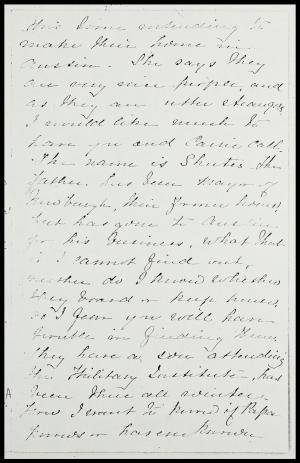 this time intending to
make their home in
Austin. She says they
are very nice people, and
as they are utter strangers
I would like much to
have you and Carrie call.
The name is Shutes. The
father has been Mayor of
Newburgh, their former home,
but has gone to Austin
for his business, what that
is I cannot find out,
neither do I know whether
they board or keep house,
so I fear you will have
trouble in finding them.
They have a son attending
the Military Institute, has
been there all winter.
Now I want to know if Papa
knows or has ever known